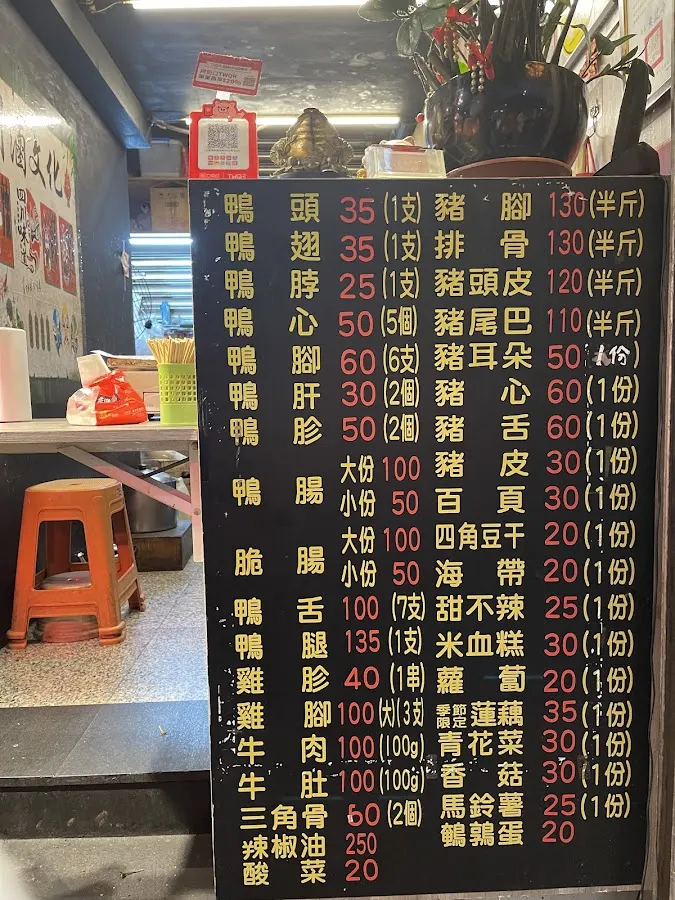 國文化
TWQR
鴨頭 35 (1支)
鴨翅 35 (1支)
鴨脖 25 (1支)
鴨心 50 (5個)
鴨腳 60 (6支)
鴨肝 30 (2個)
鴨胗 50 (2個)
鴨腸 大份 100
小份 50
脆腸 大份 100
小份 50
鴨舌 100 (7支)
鴨腿 135 (1支)
雞胗 40 (1串)
雞腳 100 (大)(3支)
牛肉 100 (100g)
牛肚 100 (100g)
三角骨 60 (2個)
辣椒油 250
酸菜 20
豬腳 130 (半斤)
排骨 130 (半斤)
豬頭皮 120 (半斤)
豬尾巴 110 (半斤)
豬耳朵 50 (1份)
豬心 60 (1份)
豬舌 60 (1份)
豬皮 30 (1份)
百頁 30 (1份)
四角豆干 20 (1份)
海帶 20 (1份)
甜不辣 25 (1份)
米血糕 30 (1份)
蘿蔔 20 (1份)
季節限定 蓮藕 35 (1份)
青花菜 30 (1份)
香菇 30 (1份)
馬鈴薯 25 (1份)
鵪鶉蛋 20